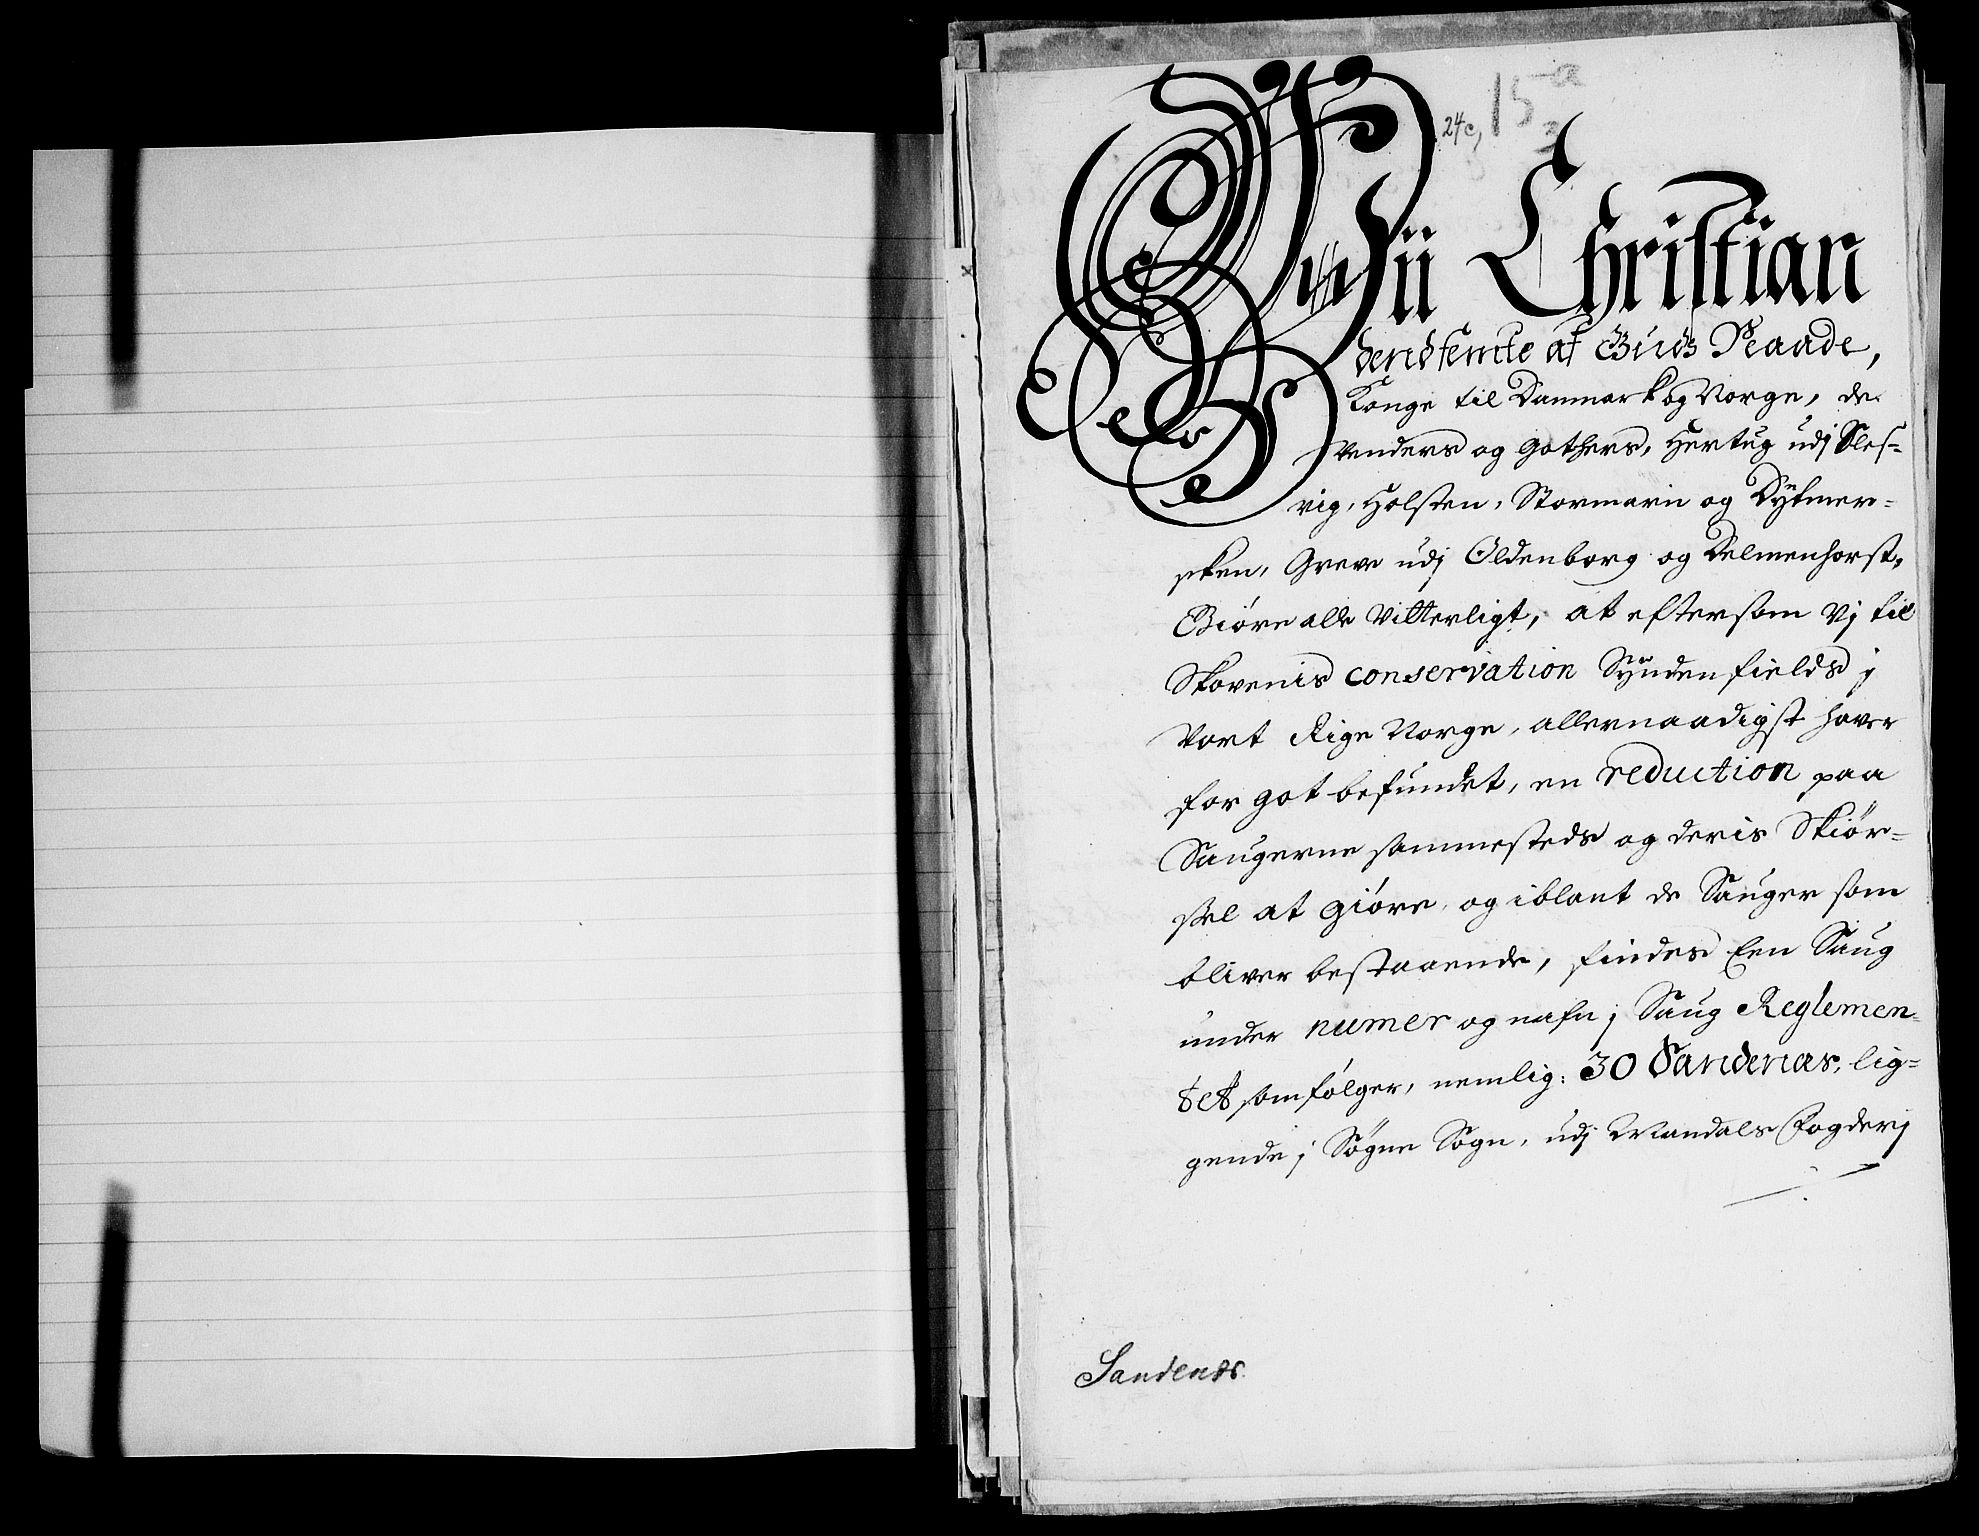 24c, 15a
2
Wii Christian
dend femte af Guds Naade,
Konge til Danmark og Norge, de
Venders og Gothers, Hertug udj Sles=
vig, Holsten, Stormarn og Dytmer=
sken, Greve udj Oldenborg og Delmenhorst,
Giöre alle Vitterligt, at eftersom Vj til
Skovenis conservation Synden fields j
Vort Rige Norge, allernaadigst haver
for got befundet, en reduction paa
Saugerne sammesteds og deris Skiör=
sel at giöre, og iblant de Sauger som
bliver bestaaende, findes Een Saug
under numer og nafn j Saug Reglemen=
tet som fölger, nemlig: 30 Sandenæs, lig=
gende j Sögne Sogn, udj Mandals Fogderj
Sandenæs